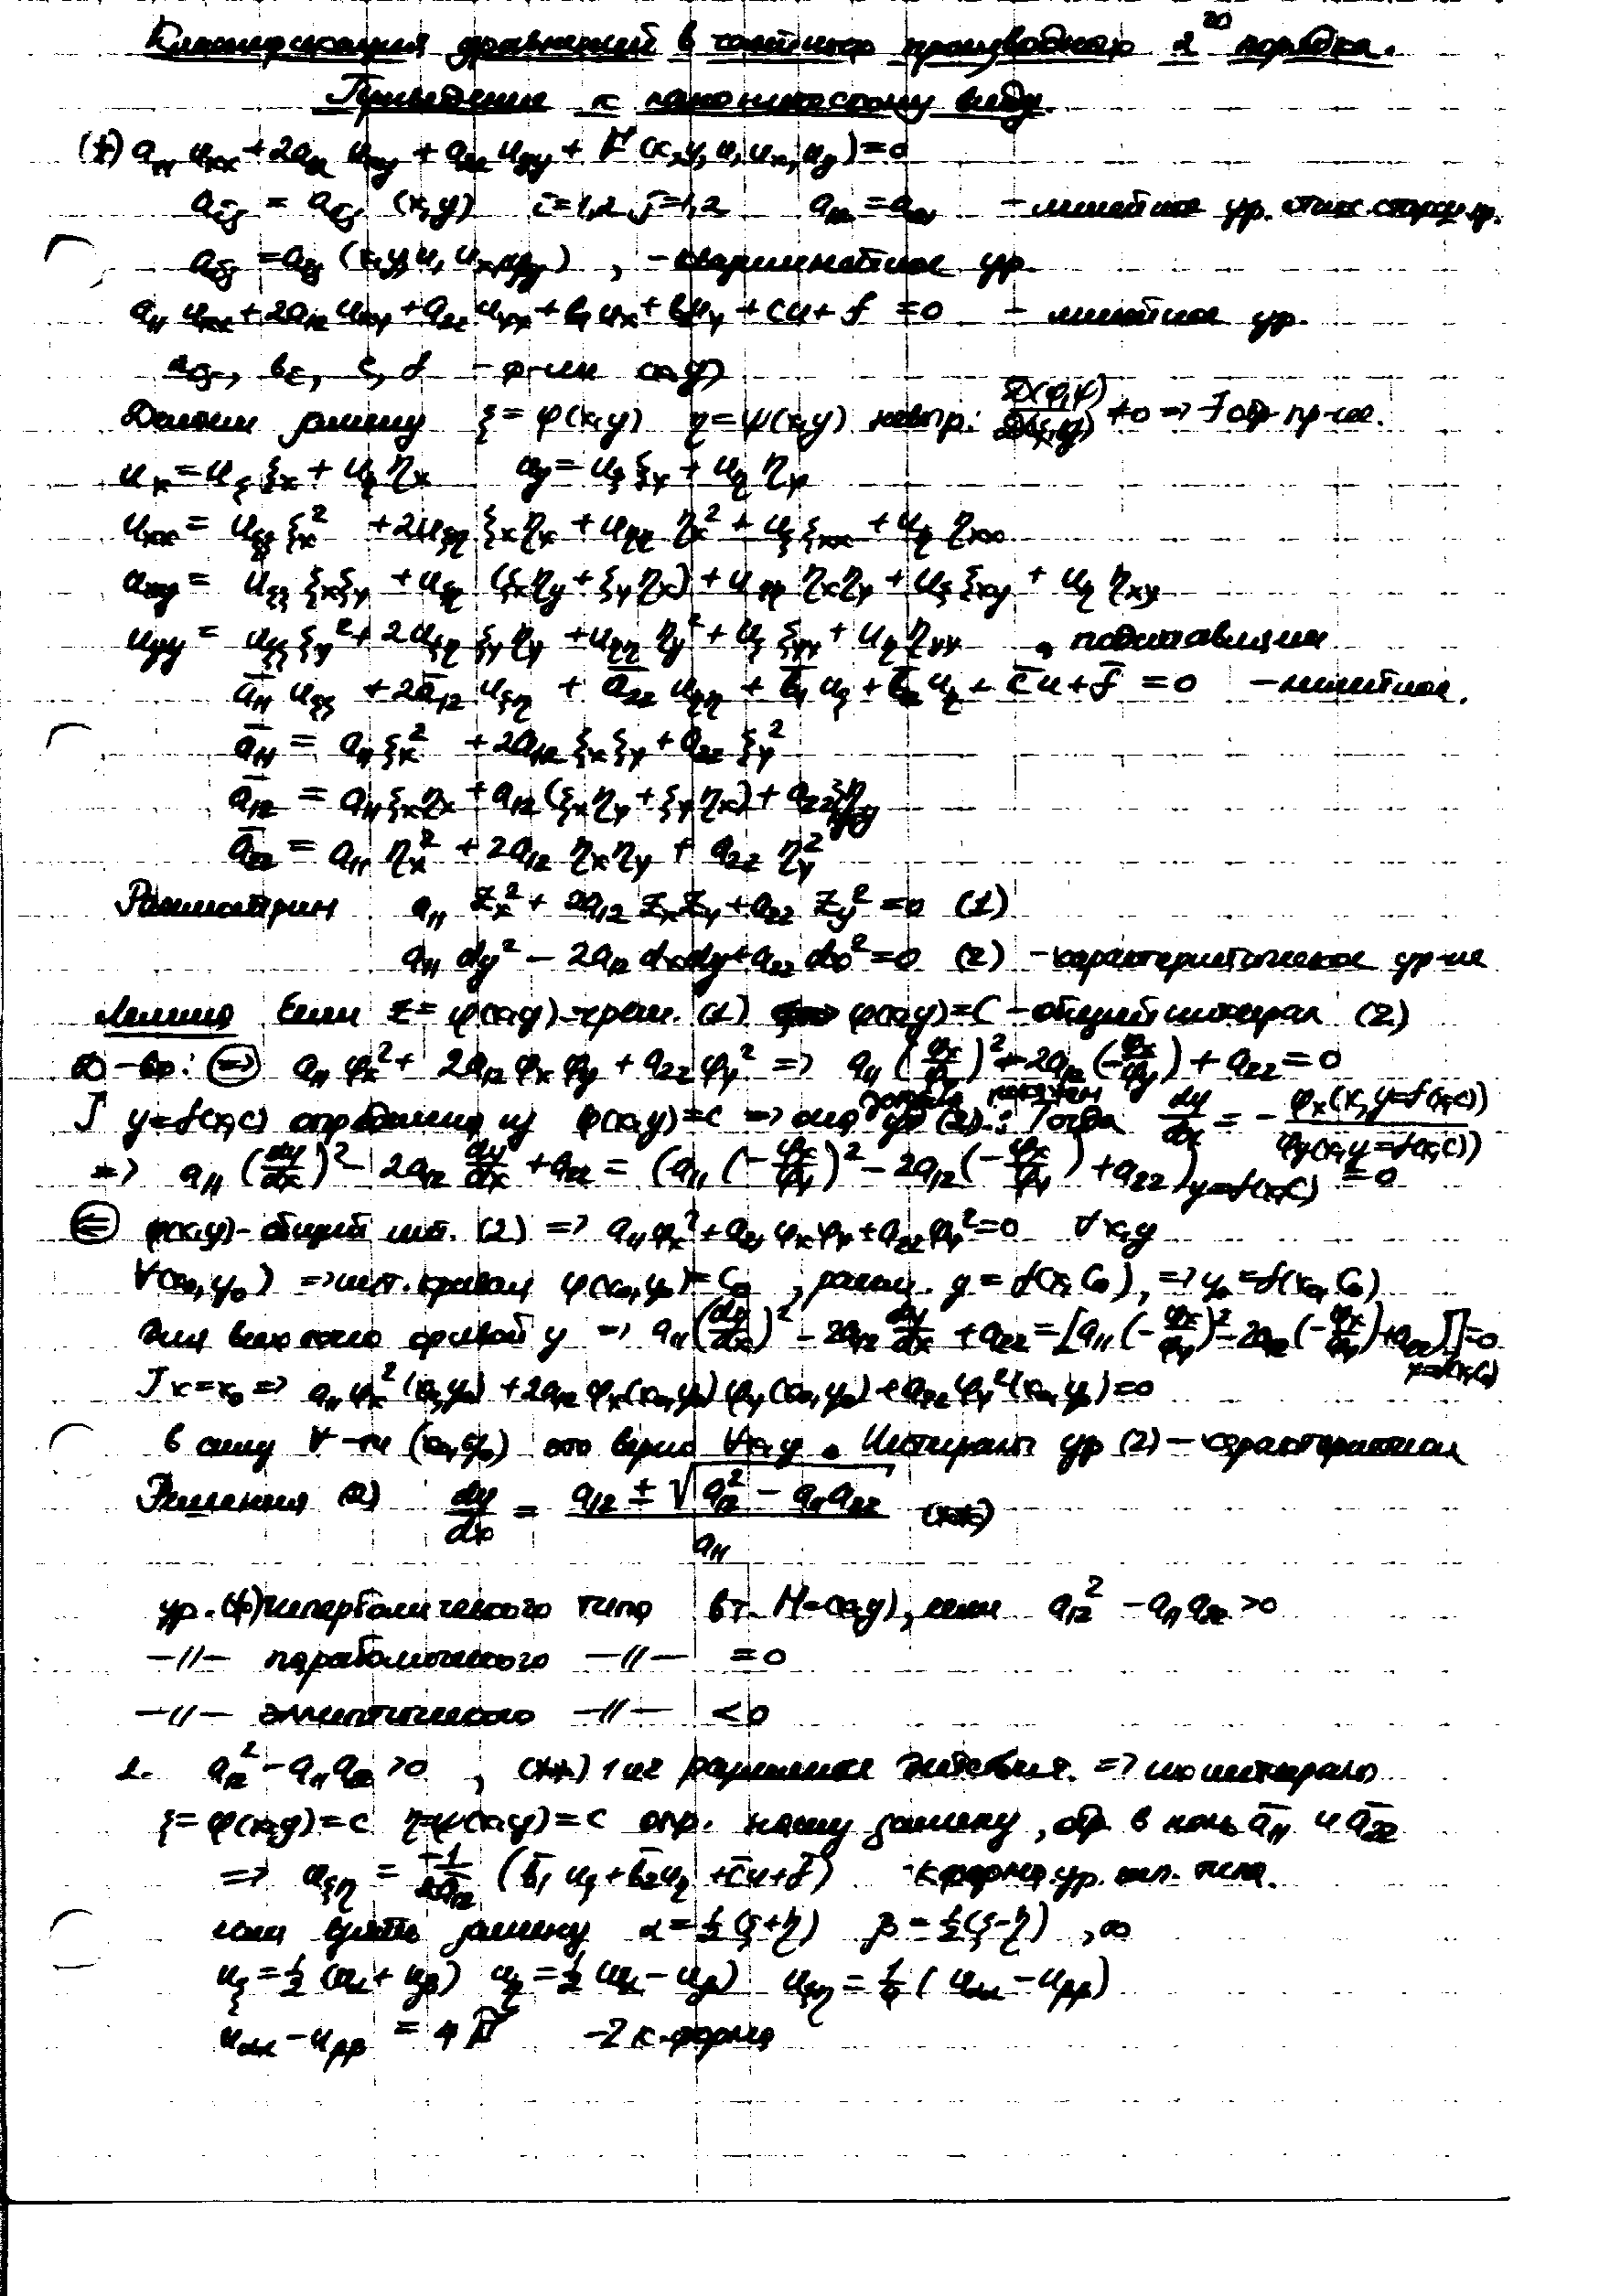 Классификация уравнений в частных производных 2го порядка.
Приведение к каноническому виду.
(*) a₁₁ uₓₓ + 2a₁₂ uₓᵧ + a₂₂ uᵧᵧ + F (x, y, u, uₓ, uᵧ) = 0
a_ij = a_ij (x, y) i=1,2 j=1,2 a₁₂ = a₂₁ - линейное ур. отн. старш. пр.
a_ij = a_ij (x, y, u, uₓ, uᵧ) , - квазилинейное ур.
a₁₁ uₓₓ + 2a₁₂ uₓᵧ + a₂₂ uᵧᵧ + b₁ uₓ + b₂ uᵧ + cu + f = 0 - линейное ур.
a_ij, b_i, c, f - ф-ции (x, y)
Делаем замену ξ = φ(x, y) η = ψ(x, y) непр: D(φ,ψ)/D(x,y) ≠ 0 => ∃ обр пр-ие.
uₓ = u_ξ ξₓ + u_η ηₓ u_y = u_ξ ξ_y + u_η η_y
uₓₓ = u_ξξ ξₓ² + 2u_ξη ξₓ ηₓ + u_ηη ηₓ² + u_ξ ξₓₓ + u_η ηₓₓ
u_xy = u_ξξ ξₓ ξ_y + u_ξη (ξₓ η_y + ξ_y ηₓ) + u_ηη ηₓ η_y + u_ξ ξ_xy + u_η η_xy
u_yy = u_ξξ ξ_y² + 2u_ξη ξ_y η_y + u_ηη η_y² + u_ξ ξ_yy + u_η η_yy , подставляем
a̅₁₁ u_ξξ + 2a̅₁₂ u_ξη + a̅₂₂ u_ηη + b̅₁ u_ξ + b̅₂ u_η + c̅u + f̅ = 0 - линейное.
a̅₁₁ = a₁₁ ξₓ² + 2a₁₂ ξₓ ξ_y + a₂₂ ξ_y²
a̅₁₂ = a₁₁ ξₓ ηₓ + a₁₂ (ξₓ η_y + ξ_y ηₓ) + a₂₂ ξ_y η_y
a̅₂₂ = a₁₁ ηₓ² + 2a₁₂ ηₓ η_y + a₂₂ η_y²
Рассмотрим a₁₁ zₓ² + 2a₁₂ zₓ z_y + a₂₂ z_y² = 0 (1)
a₁₁ dy² - 2a₁₂ dxdy + a₂₂ dx² = 0 (2) - характеристическое ур-ие
Лемма Если z = φ(x, y) - ч. реш. (1) <=> φ(x, y) = C - общий интеграл (2)
Д-во: (=>) a₁₁ φₓ² + 2a₁₂ φₓ φ_y + a₂₂ φ_y² => a₁₁ (φₓ/φ_y)² - 2a₁₂ (-φₓ/φ_y) + a₂₂ = 0
] y = f(x, c) определена из φ(x, y) = c => ур (2). : Тогда dy/dx = - φₓ(x, y=f(x,c)) / φ_y(x, y=f(x,c))
=> a₁₁ (dy/dx)² - 2a₁₂ dy/dx + a₂₂ = (a₁₁ (-φₓ/φ_y)² - 2a₁₂ (-φₓ/φ_y) + a₂₂)_y=f(x,c) = 0
(<=) φ(x, y) - общий инт. (2) => a₁₁ φₓ² + a₂₁ φₓ φ_y + a₂₂ φ_y² = 0 ∀ x, y
∀(x₀, y₀) => инт. кривая φ(x₀, y₀) = C₀ , y = f(x, C₀), => y₀ = f(x₀, C₀)
Для всех кривой y => a₁₁ (dy/dx)² - 2a₁₂ dy/dx + a₂₂ = [a₁₁ (-φₓ/φ_y)² - 2a₁₂ (-φₓ/φ_y) + a₂₂]_y=f(x,C₀) = 0
] x = x₀ => a₁₁ φₓ² (x₀, y₀) + 2a₁₂ φₓ(x₀, y₀) φ_y(x₀, y₀) + a₂₂ φ_y² (x₀, y₀) = 0
в силу ∀-ти (x₀, y₀) это верно ∀ x, y. Интегралы ур (2) - характеристики
Решения (2) dy/dx = (a₁₂ ± √(a₁₂² - a₁₁ a₂₂)) / a₁₁ (**)
ур. (*) гиперболического типа в т. M = (x, y), если a₁₂² - a₁₁ a₂₂ > 0
-//- параболического -//- = 0
-//- эллиптического -//- < 0
1. a₁₂² - a₁₁ a₂₂ > 0 , (**) различные действит. => интегралы
ξ = φ(x, y) = c η = ψ(x, y) = c опр. нашу замену, обр. в ноль a̅₁₁ и a̅₂₂
=> u_ξη = -1/(2a̅₁₂) (b̅₁ u_ξ + b̅₂ u_η + c̅u + f̅) - к форма ур. гип. типа.
или взять замену α = ½ (ξ+η) β = ½ (ξ-η) , то
u_ξ = ½ (u_α + u_β) u_η = ½ (u_α - u_β) u_ξη = ¼ (u_αα - u_ββ)
u_αα - u_ββ = 4 F̃ - 2 к. форма